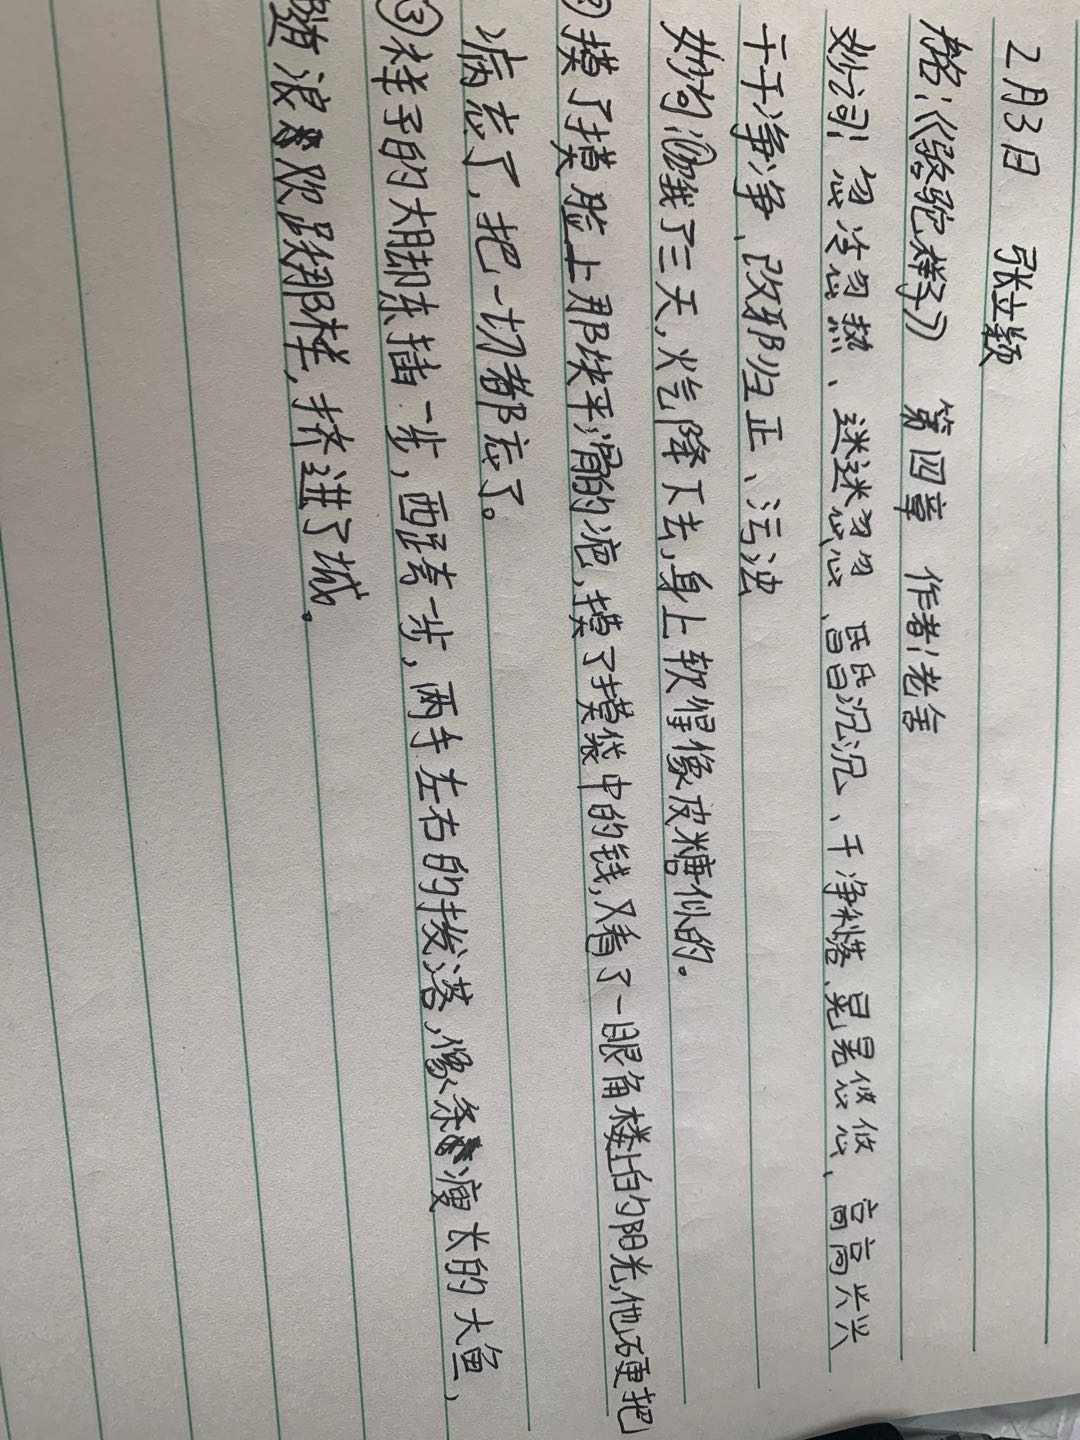 2月3日 张立颖
名:《骆驼祥子》 第四章 作者:老舍
妙词:忽冷忽热、迷迷忽忽、昏昏沉沉、干净利落、晃晃悠悠、高高兴兴
干干净净、改邪归正、污浊
妙句:①饿了三天,火气降下去,身上软得像皮糖似的。
②摸了摸脸上那块平滑的疤,摸了摸袋中的钱,又看了一眼角楼上的阳光,他硬把
病忘了,把一切都忘了。
③祥子的大脚东插一步,西跨一步,两手左右的拨落,像条瘦长的大鱼,
随浪欢跃那样,挤进了城。